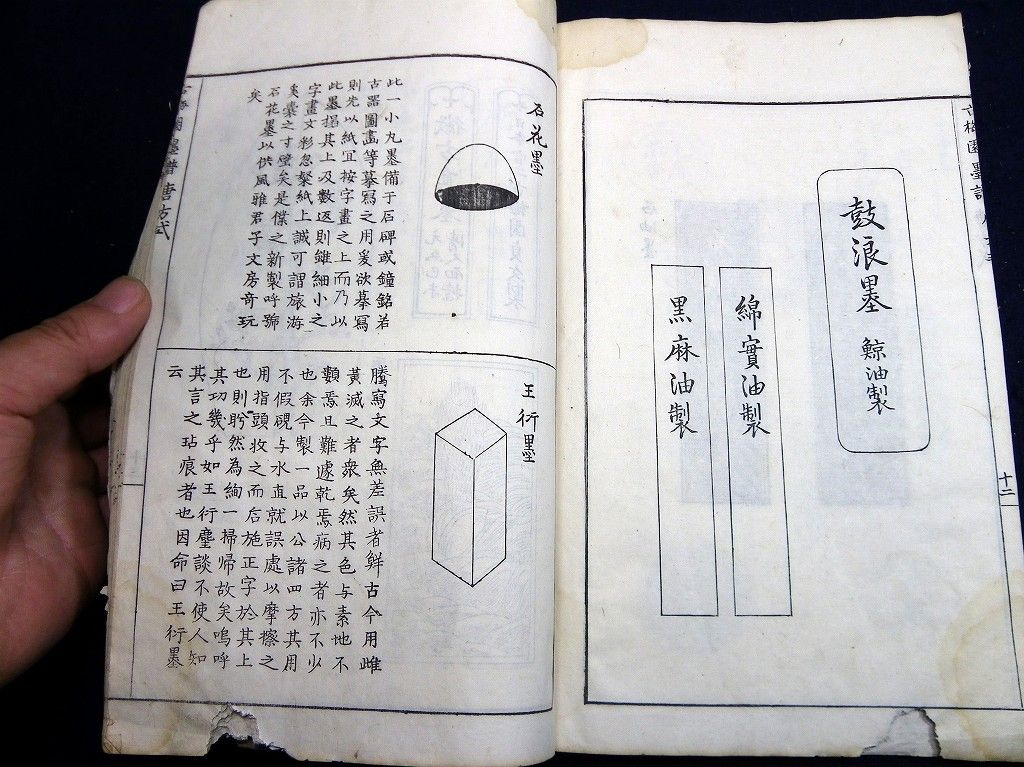 鼓浪墨 鯨油製
綿實油製
黒麻油製
十二
石花墨
此一小丸墨備于石碑或鐘銘若
古器圖畫等摹寫之用爰欲摹寫
則先以紙冝按字畫之上而乃以
此墨摺其上及数返則雖細小之
字畫文彩忽粲紙上誠可謂旅海
囊之寸壁矣是僕之新製呼號
石花墨以供風雅君子文房奇玩
矣
王衍墨
騰寫文字無差誤者鮮古今用雌
黃滅之者衆矣然其色与素地不
顡焉且難遽乾焉病之者亦不少
也余今製一品以公諸四方其用
不假硯与水直就誤處以摩擦之
用指頭收之而后施正字於其上
也則肹然為絢一掃帰故矣嗚呼
其功幾乎如王衍麈談不使人知
其言之玷痕者也因命曰王衍墨
云